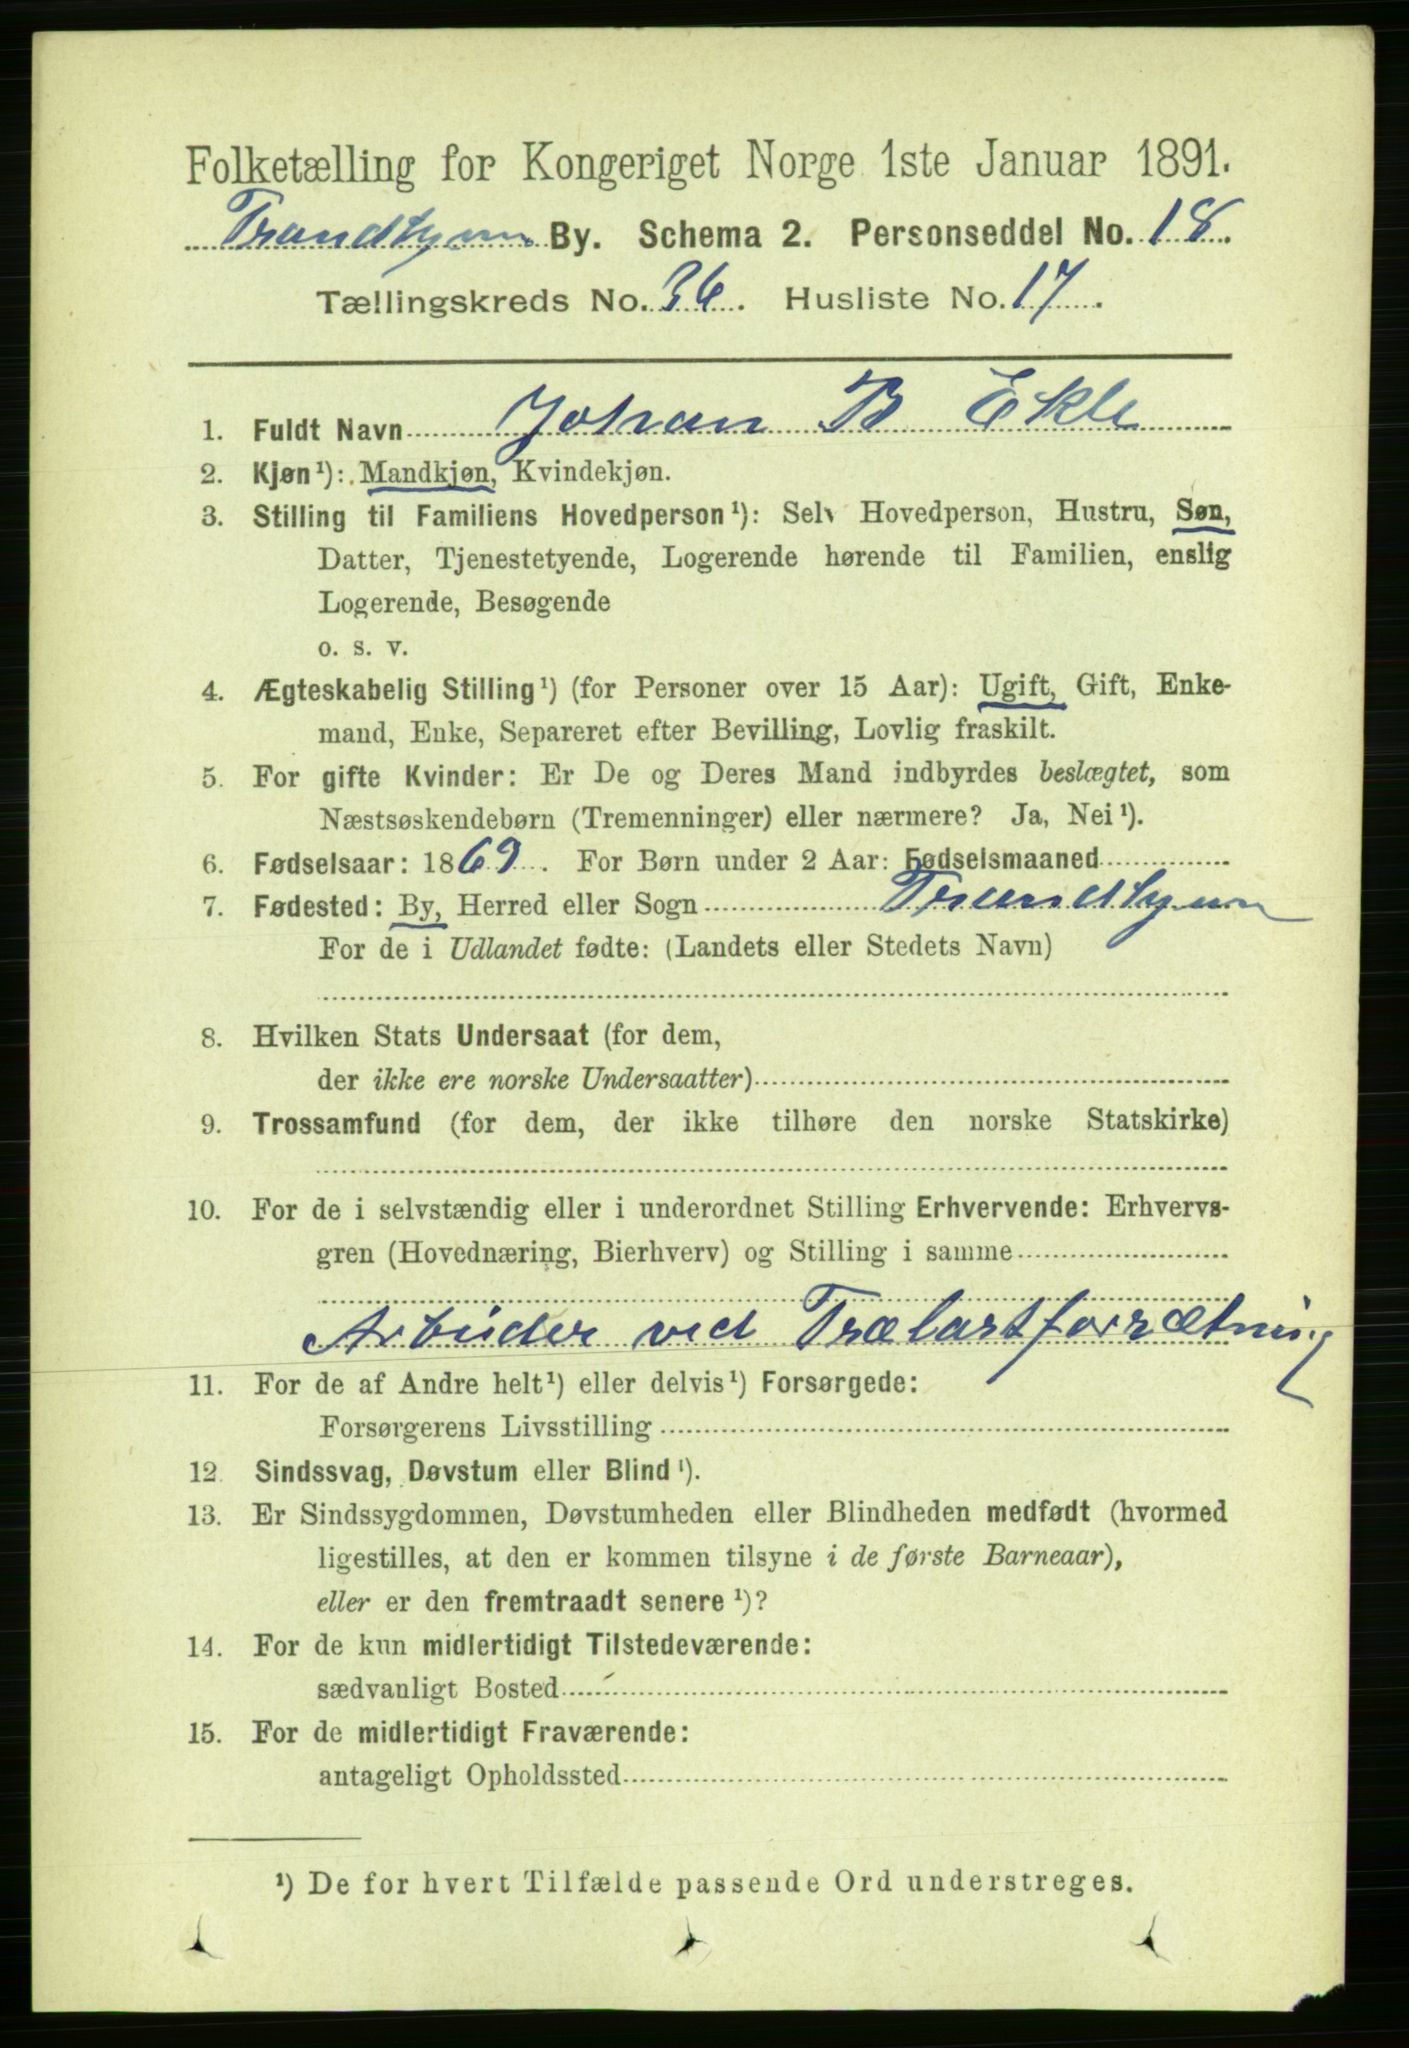 Folketælling for Kongeriget Norge 1ste Januar 1891.
Trondhjem By. Schema 2. Personseddel No. 18.
Tællingskreds No. 36. Husliste No. 17.
1. Fuldt Navn Johan B Ekle
2. Kjøn¹): Mandkjøn, Kvindekjøn.
3. Stilling til Familiens Hovedperson¹): Selv Hovedperson, Hustru, Søn,
Datter, Tjenestetyende, Logerende hørende til Familien, enslig
Logerende, Besøgende
o. s. v.
4. Ægteskabelig Stilling¹) (for Personer over 15 Aar): Ugift, Gift, Enke-
mand, Enke, Separeret efter Bevilling, Lovlig fraskilt.
5. For gifte Kvinder: Er De og Deres Mand indbyrdes beslægtet, som
Næstsøskendebørn (Tremenninger) eller nærmere? Ja, Nei¹).
6. Fødselsaar: 1869. For Børn under 2 Aar: Fødselsmaaned
7. Fødested: By, Herred eller Sogn Trondhjem
For de i Udlandet fødte: (Landets eller Stedets Navn)
8. Hvilken Stats Undersaat (for dem,
der ikke ere norske Undersaatter)
9. Trossamfund (for dem, der ikke tilhøre den norske Statskirke)
10. For de i selvstændig eller i underordnet Stilling Erhvervende: Erhvervs-
gren (Hovednæring, Bierhverv) og Stilling i samme
Arbeider ved Trælastforrætning
11. For de af Andre helt¹) eller delvis¹) Forsørgede:
Forsørgerens Livsstilling
12. Sindssvag, Døvstum eller Blind¹).
13. Er Sindssygdommen, Døvstumheden eller Blindheden medfødt (hvormed
ligestilles, at den er kommen tilsyne i de første Barneaar),
eller er den fremtraadt senere¹)?
14. For de kun midlertidigt Tilstedeværende:
sædvanligt Bosted
15. For de midlertidigt Fraværende:
antageligt Opholdssted
¹) De for hvert Tilfælde passende Ord understreges.